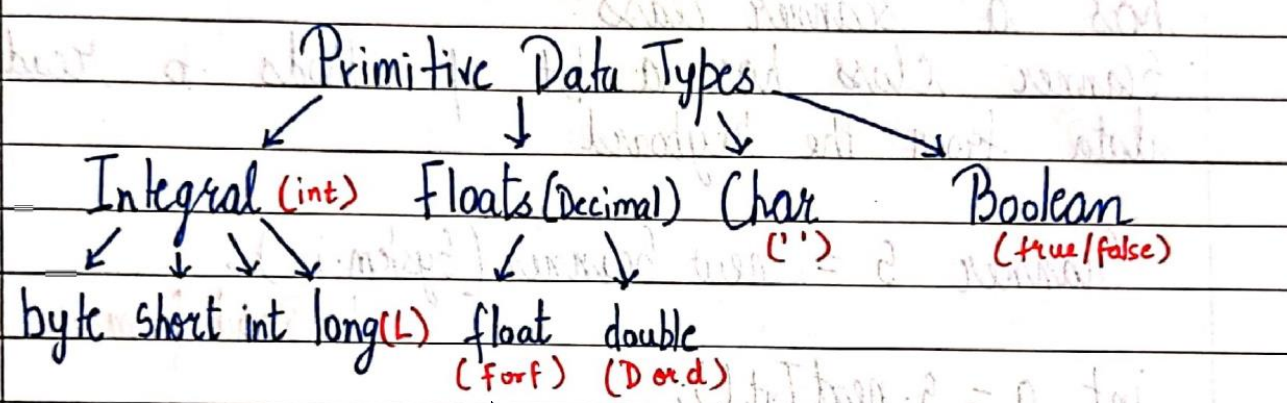 Primitive Data Types
Integral (int) Floats (Decimal) Char Boolean
(' ') (true/false)
byte short int long(L) float double
(F or f) (D or d)